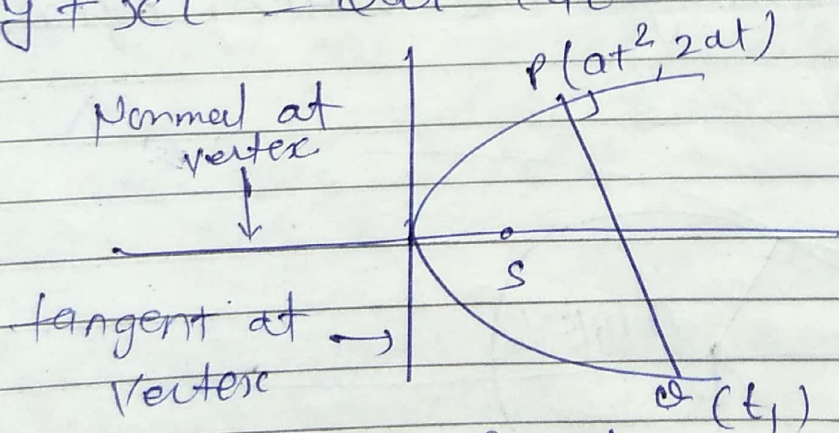 y + xt = 2at
P(at², 2at)
Normal at
vertex
S
tangent at
Vertex
Q (t₁)